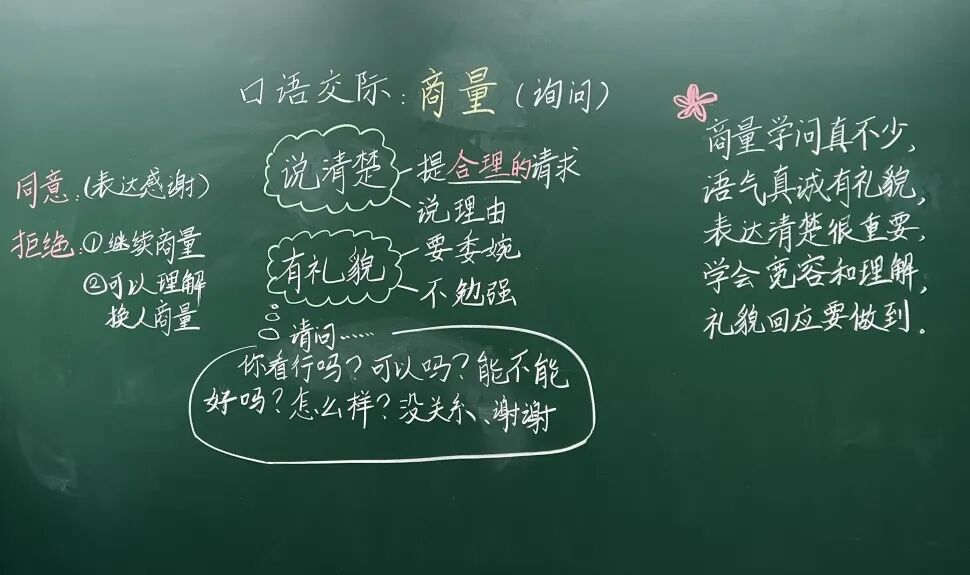 口语交际:商量(询问)
同意:(表达感谢)
拒绝:①继续商量
②可以理解
换人商量
说清楚
提合理的请求
说理由
有礼貌
要委婉
不勉强
请问……
你看行吗?可以吗?能不能
好吗?怎么样?没关系、谢谢
商量学问真不少,
语气真诚有礼貌,
表达清楚很重要,
学会宽容和理解,
礼貌回应要做到.